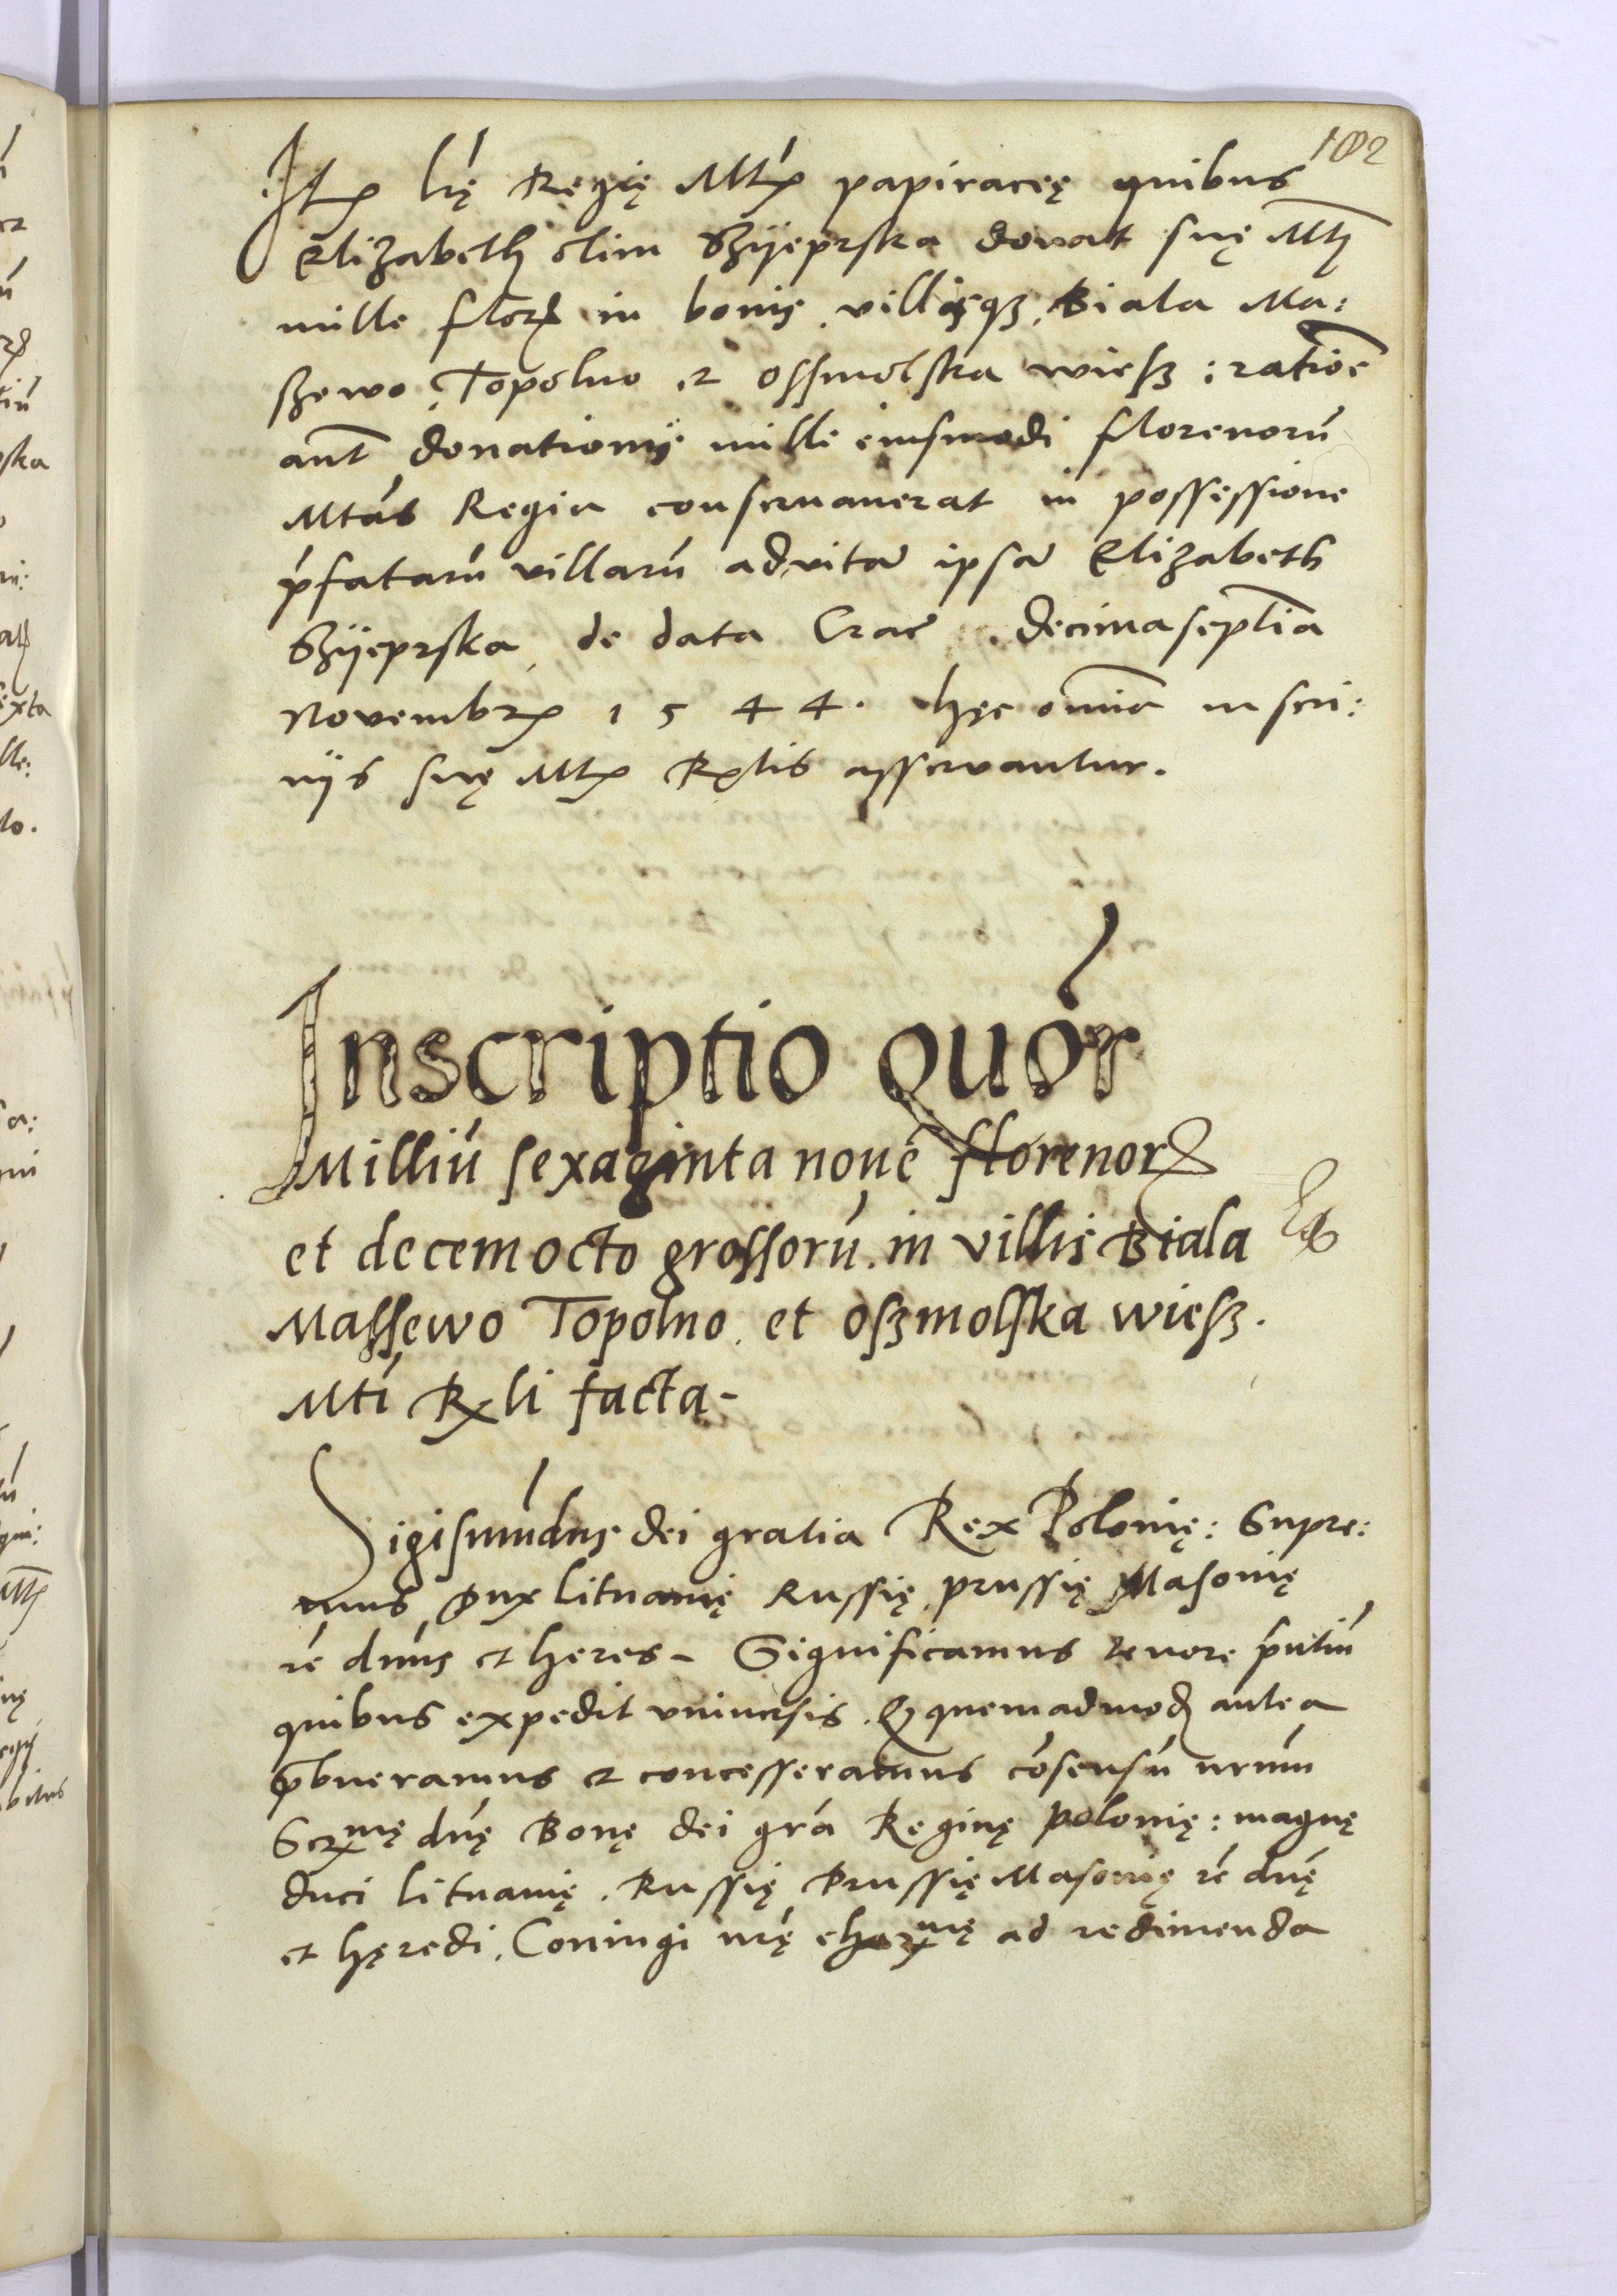 102
Itꝫ lrę Regię Mtꝫ papiraceę quibus
Elizabeth olim Szÿeprska donat suę Mti
mille florꝫ in bonis villisqꝫ Biala Ma:
szewo Topolno et Ossmolska wiesz: ratioē
aut donationis mille eiusmodi florenorū
Mtas Regia conseruauerat in possessione
p̄fatarū villarū aduitā ipsā Elizabeth
Szÿeprska de data Crac̄ decima septīa
Novembrꝫ 1544. hęc omīa in scri:
nÿs suę Mtꝫ Rꝫlis asseruantur.
Inscriptio quór
Milliū sexaginta nouē florenorꝫ
et decem octo grossorū in villis Biala
Massewo Topolno et oszmolska wiesz.
Mti Rꝫli facta-
Sigismūdus dei gratia Rex Polonię: Supre:
mus Dux Lituanię Russię prussię Masouię
rē dnūs et heres- Significamus tenore p̄ntiū
quibus expedit vniuersis. Qꝫ quemadmodꝫ antea
p̄bueramus et concesseramus cōsensū nrūm
Serꝫmę dnę Bonę dei grā Reginę polonię: magnę
duci Lituanię. Russię Prussię Masouię rē dnę
et hęredi. Coniugi nrę charꝫmę ad redimenda